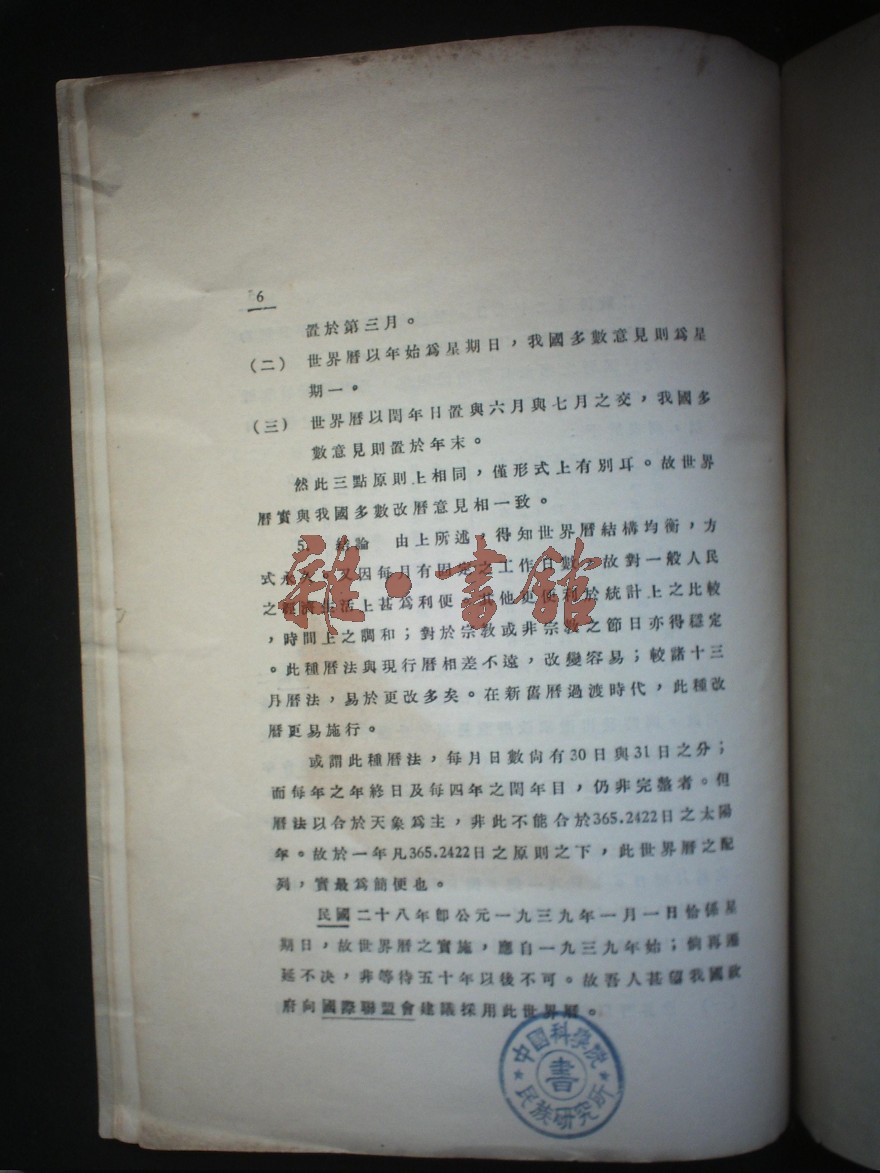 6
置於第三月。
(二) 世界曆以年始爲星期日，我國多數意見則爲星
期一。
(三) 世界曆以閏年日置與六月與七月之交，我國多
數意見則置於年末。
然此三點原則上相同，僅形式上有別耳。故世界
曆實與我國多數改曆意見相一致。
5. 結論 由上所述，得知世界曆結構均衡，方
式永久，又因每月有固定之工作日數，故對一般人民
之經濟生活上甚爲利便。其他更便利於統計上之比較
，時間上之調和；對於宗教或非宗教之節日亦得穩定
。此種曆法與現行曆相差不遠，改變容易；較諸十三
月曆法，易於更改多矣。在新舊曆過渡時代，此種改
曆更易施行。
或謂此種曆法，每月日數尙有30日與31日之分；
而每年之年終日及每四年之閏年目，仍非完整者。但
曆法以合於天象爲主，非此不能合於365.2422日之太陽
年。故於一年凡365.2422日之原則之下，此世界曆之配
列，實最爲簡便也。
民國二十八年卽公元一九三九年一月一日恰係星
期日，故世界曆之實施，應自一九三九年始；倘再遷
延不決，非等待五十年以後不可。故吾人甚望我國政
府向國際聯盟會建議採用此世界曆。
雜·書館
中國科學院
書
民族研究所